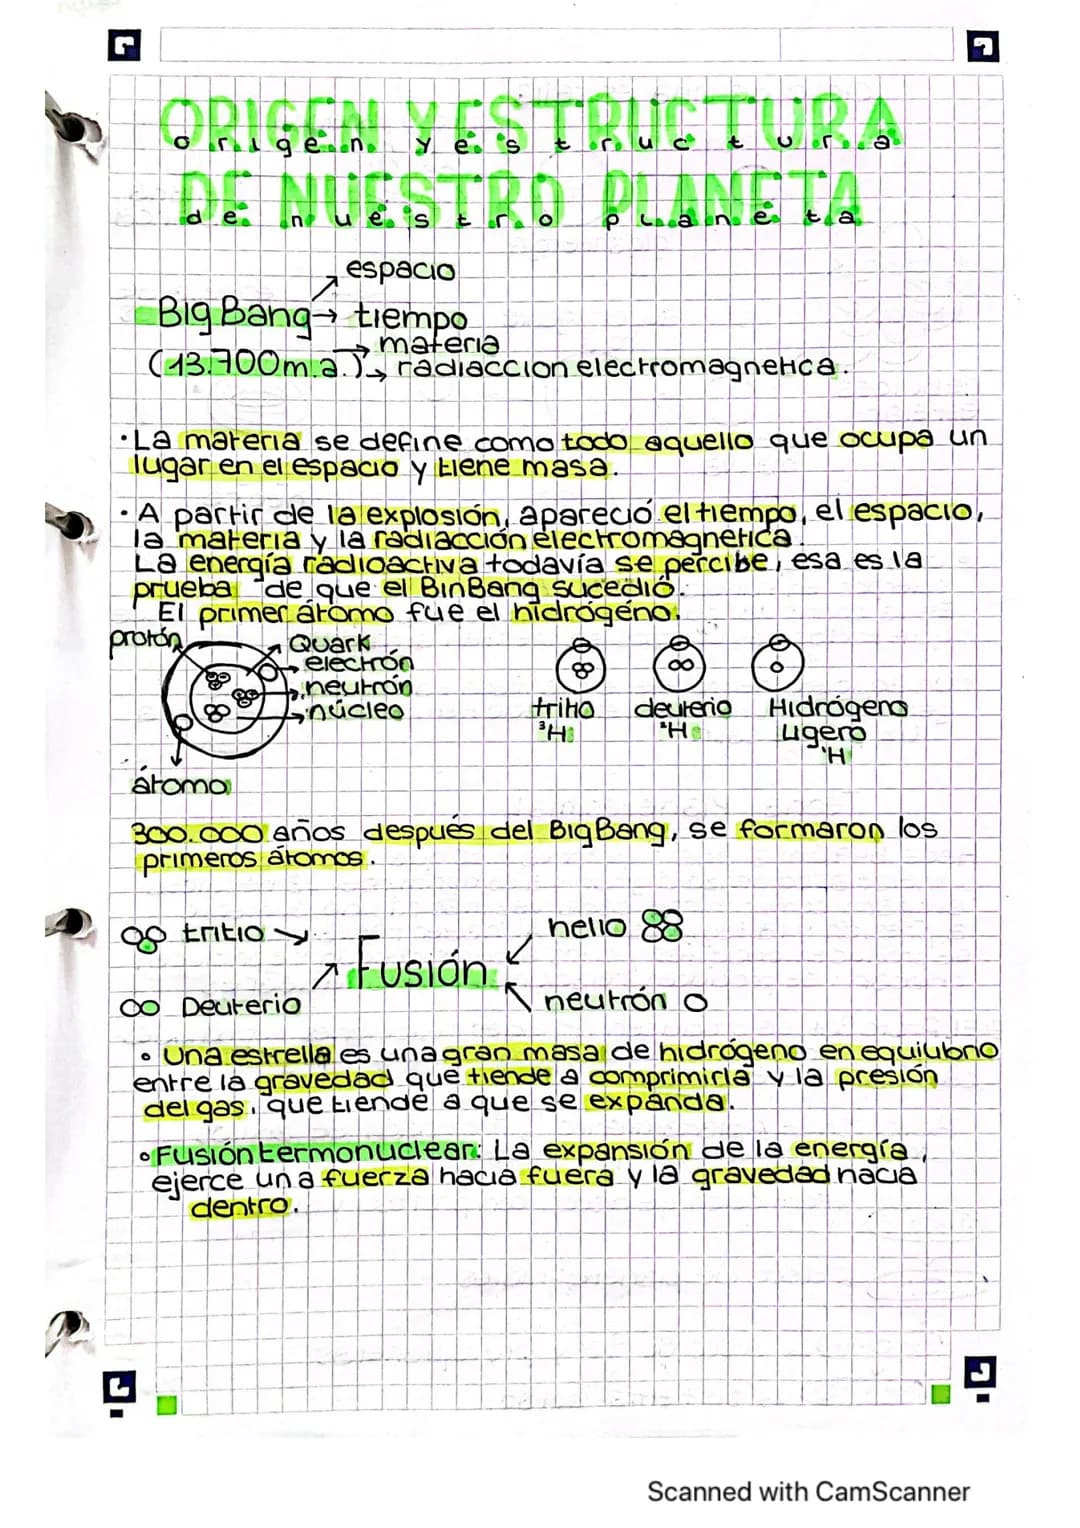 ORIGEN Y ESTRUCTURA
origen y estructura
DE NUESTRO PLANETA
de nuestro planeta
espacio
Big Bang → tiempo
materia
(13.700m.a.) → radiaccion electromagnetica.
·La materia se define como todo aquello que ocupa un
lugar en el espacio y tiene masa.
·A partir de la explosión, apareció el tiempo, el espacio,
la materia y la radiacción electromagnetica.
La energía radioactiva todavía se percibe, esa es la
prueba de que el BinBang sucedió.
El primer átomo fue el hidrógeno.
protón
Quark
electrón
neutrón
núcleo
átomo
tritio deuterio Hidrógeno
ligero
³H ²H ¹H
300.000 años después del Big Bang, se formaron los
primeros átomos.
tritio helio
Fusión
Deuterio neutrón
• Una estrella es una gran masa de hidrógeno en equilibrio
entre la gravedad que tiende a comprimirla y la presión
del gas, que tiende a que se expanda.
• Fusión termonuclear: La expansión de la energía,
ejerce una fuerza hacia fuera y la gravedad hacia
dentro.
Scanned with CamScanner